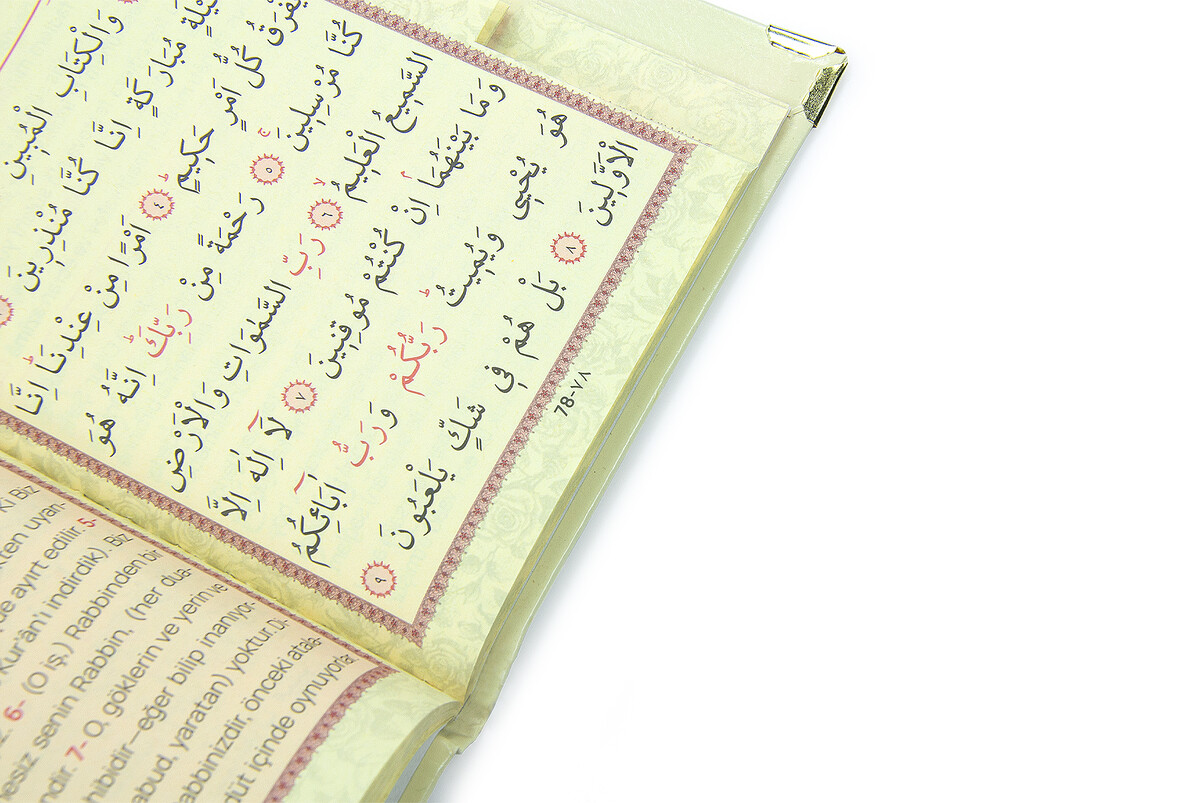 وَالْكِتَابِ الْمُبِينِ
لَيْلَةٍ مُبَارَكَةٍ اِنَّا كُنَّا مُنْذِرِينَ
يُفْرَقُ كُلُّ اَمْرٍ حَكِيمٍ ٤ اَمْرًا مِنْ عِنْدِنَاۜ اِنَّا
كُنَّا مُرْسِلِينَۚ ٥ رَحْمَةً مِنْ رَبِّكَۜ اِنَّهُ هُوَ
السَّمِيعُ الْعَلِيمُۙ ٦ رَبِّ السَّمٰوَاتِ وَالْاَرْضِ
وَمَا بَيْنَهُمَاۢ اِنْ كُنْتُمْ مُوقِنِينَ ٧ لَٓا اِلٰهَ اِلَّا
هُوَ يُحْيِي وَيُمِيتُۜ رَبُّكُمْ وَرَبُّ اٰبَٓائِكُمُ
الْاَوَّلِينَ ٨ بَلْ هُمْ فِي شَكٍّ يَلْعَبُونَ ٩
78-٧٨
Ki Biz
uyan-
de ayırt edilir. 5-
Kur'ân'ı indirdik). Biz
6- (O iş,) Rabbinden bir
senin Rabbin, (her dua-
7- O, göklerin ve yerin ve
hibidir—eğer bilip inanıyor-
abud, yaratan) yoktur. Di-
abbinizdir, önceki atala-
düt içinde oynuyorlar.